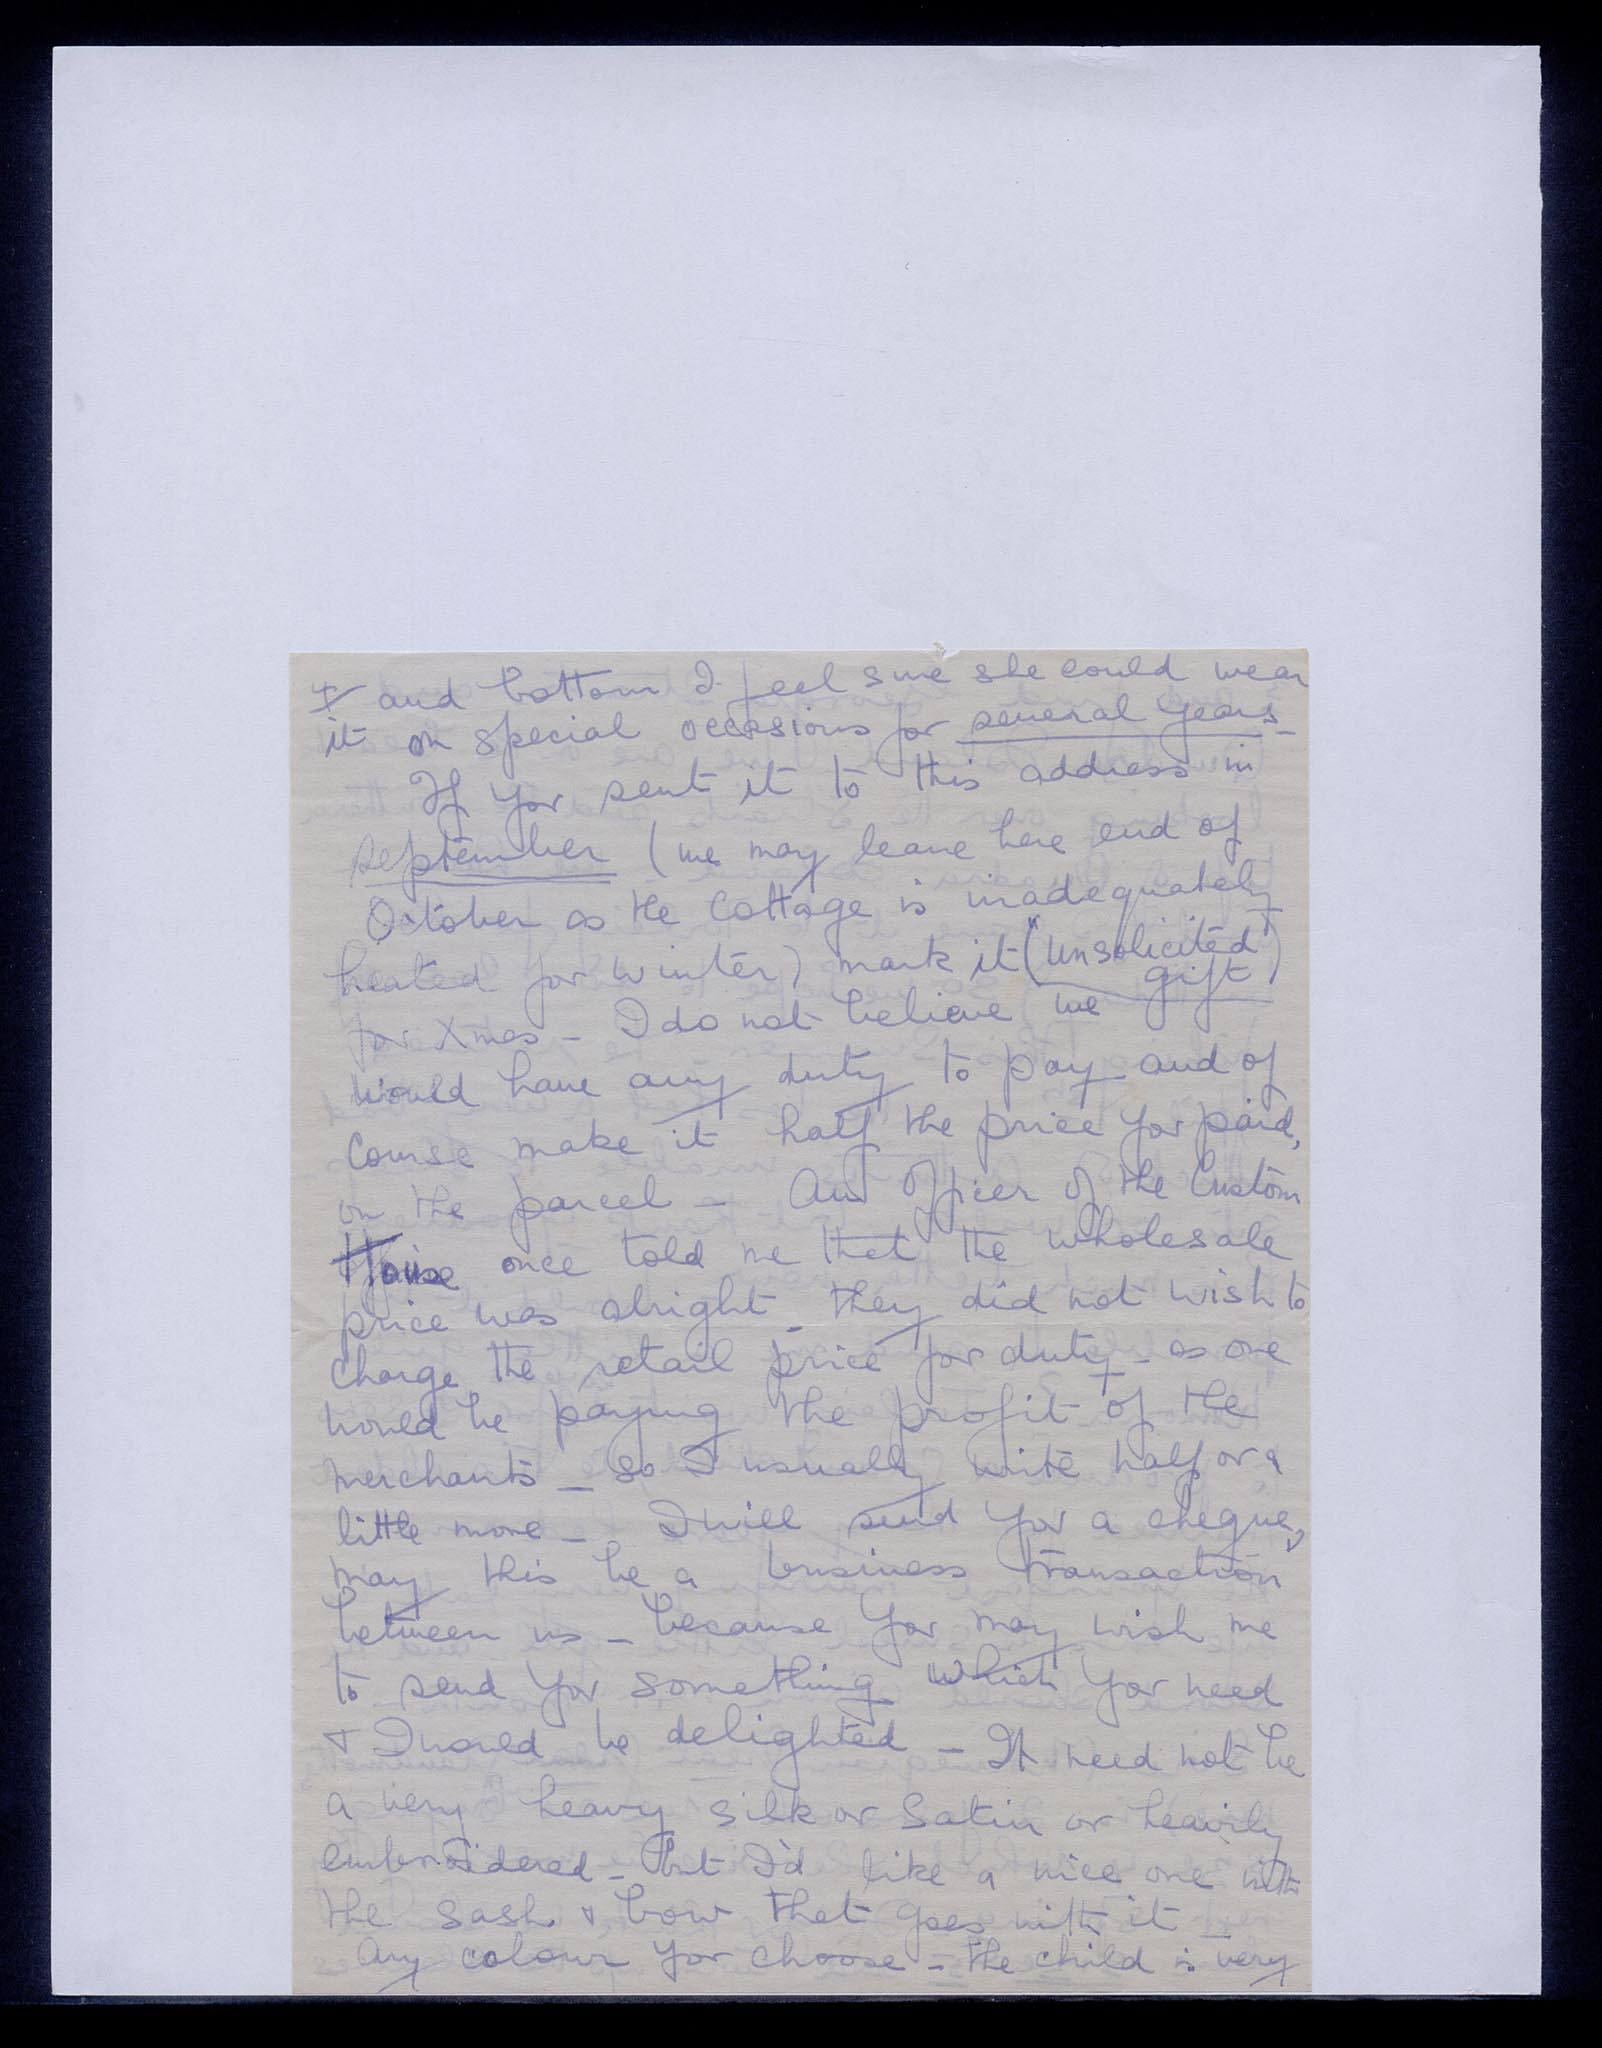 and bottom I feel sure she could wear
it on special occasions for several years -
If you sent it to this address in
September (we may leave here end of
October as the Cottage is inadequately
heated for winter) mark it ("Unsolicited
gift")
for Xmas - I do not believe we
would have any duty to pay and of
course make it half the price you paid,
on the parcel - An Officer of the Custom
House once told me that the wholesale
price was alright - they did not wish to
charge the retail price for duty - as one
would be paying the profit of the
merchants - so I usually write half or a
little more - I will send you a cheque,
may this be a business transaction
between us - because you may wish me
to send you something which you need
& I would be delighted - It need not be
a very heavy silk or Satin or heavily
embroidered - but I'd like a nice one with
the sash & bow that goes with it -
Any colour you choose - the child is very